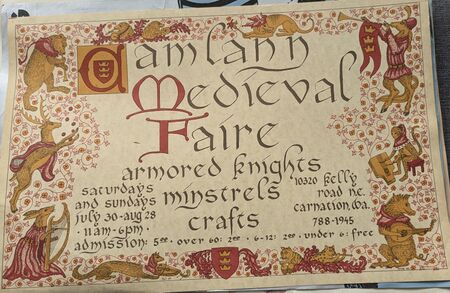 Camlann
Medieval
Faire
armored knights
minstrels
crafts
saturdays
and sundays
july 30-aug 28
· 11am-6pm ·
admission: 5⁰⁰ · over 60: 2⁰⁰ · 6-12: 2⁰⁰ · under 6: free
10320 kelly
road n.e.
carnation, wa.
788-1945